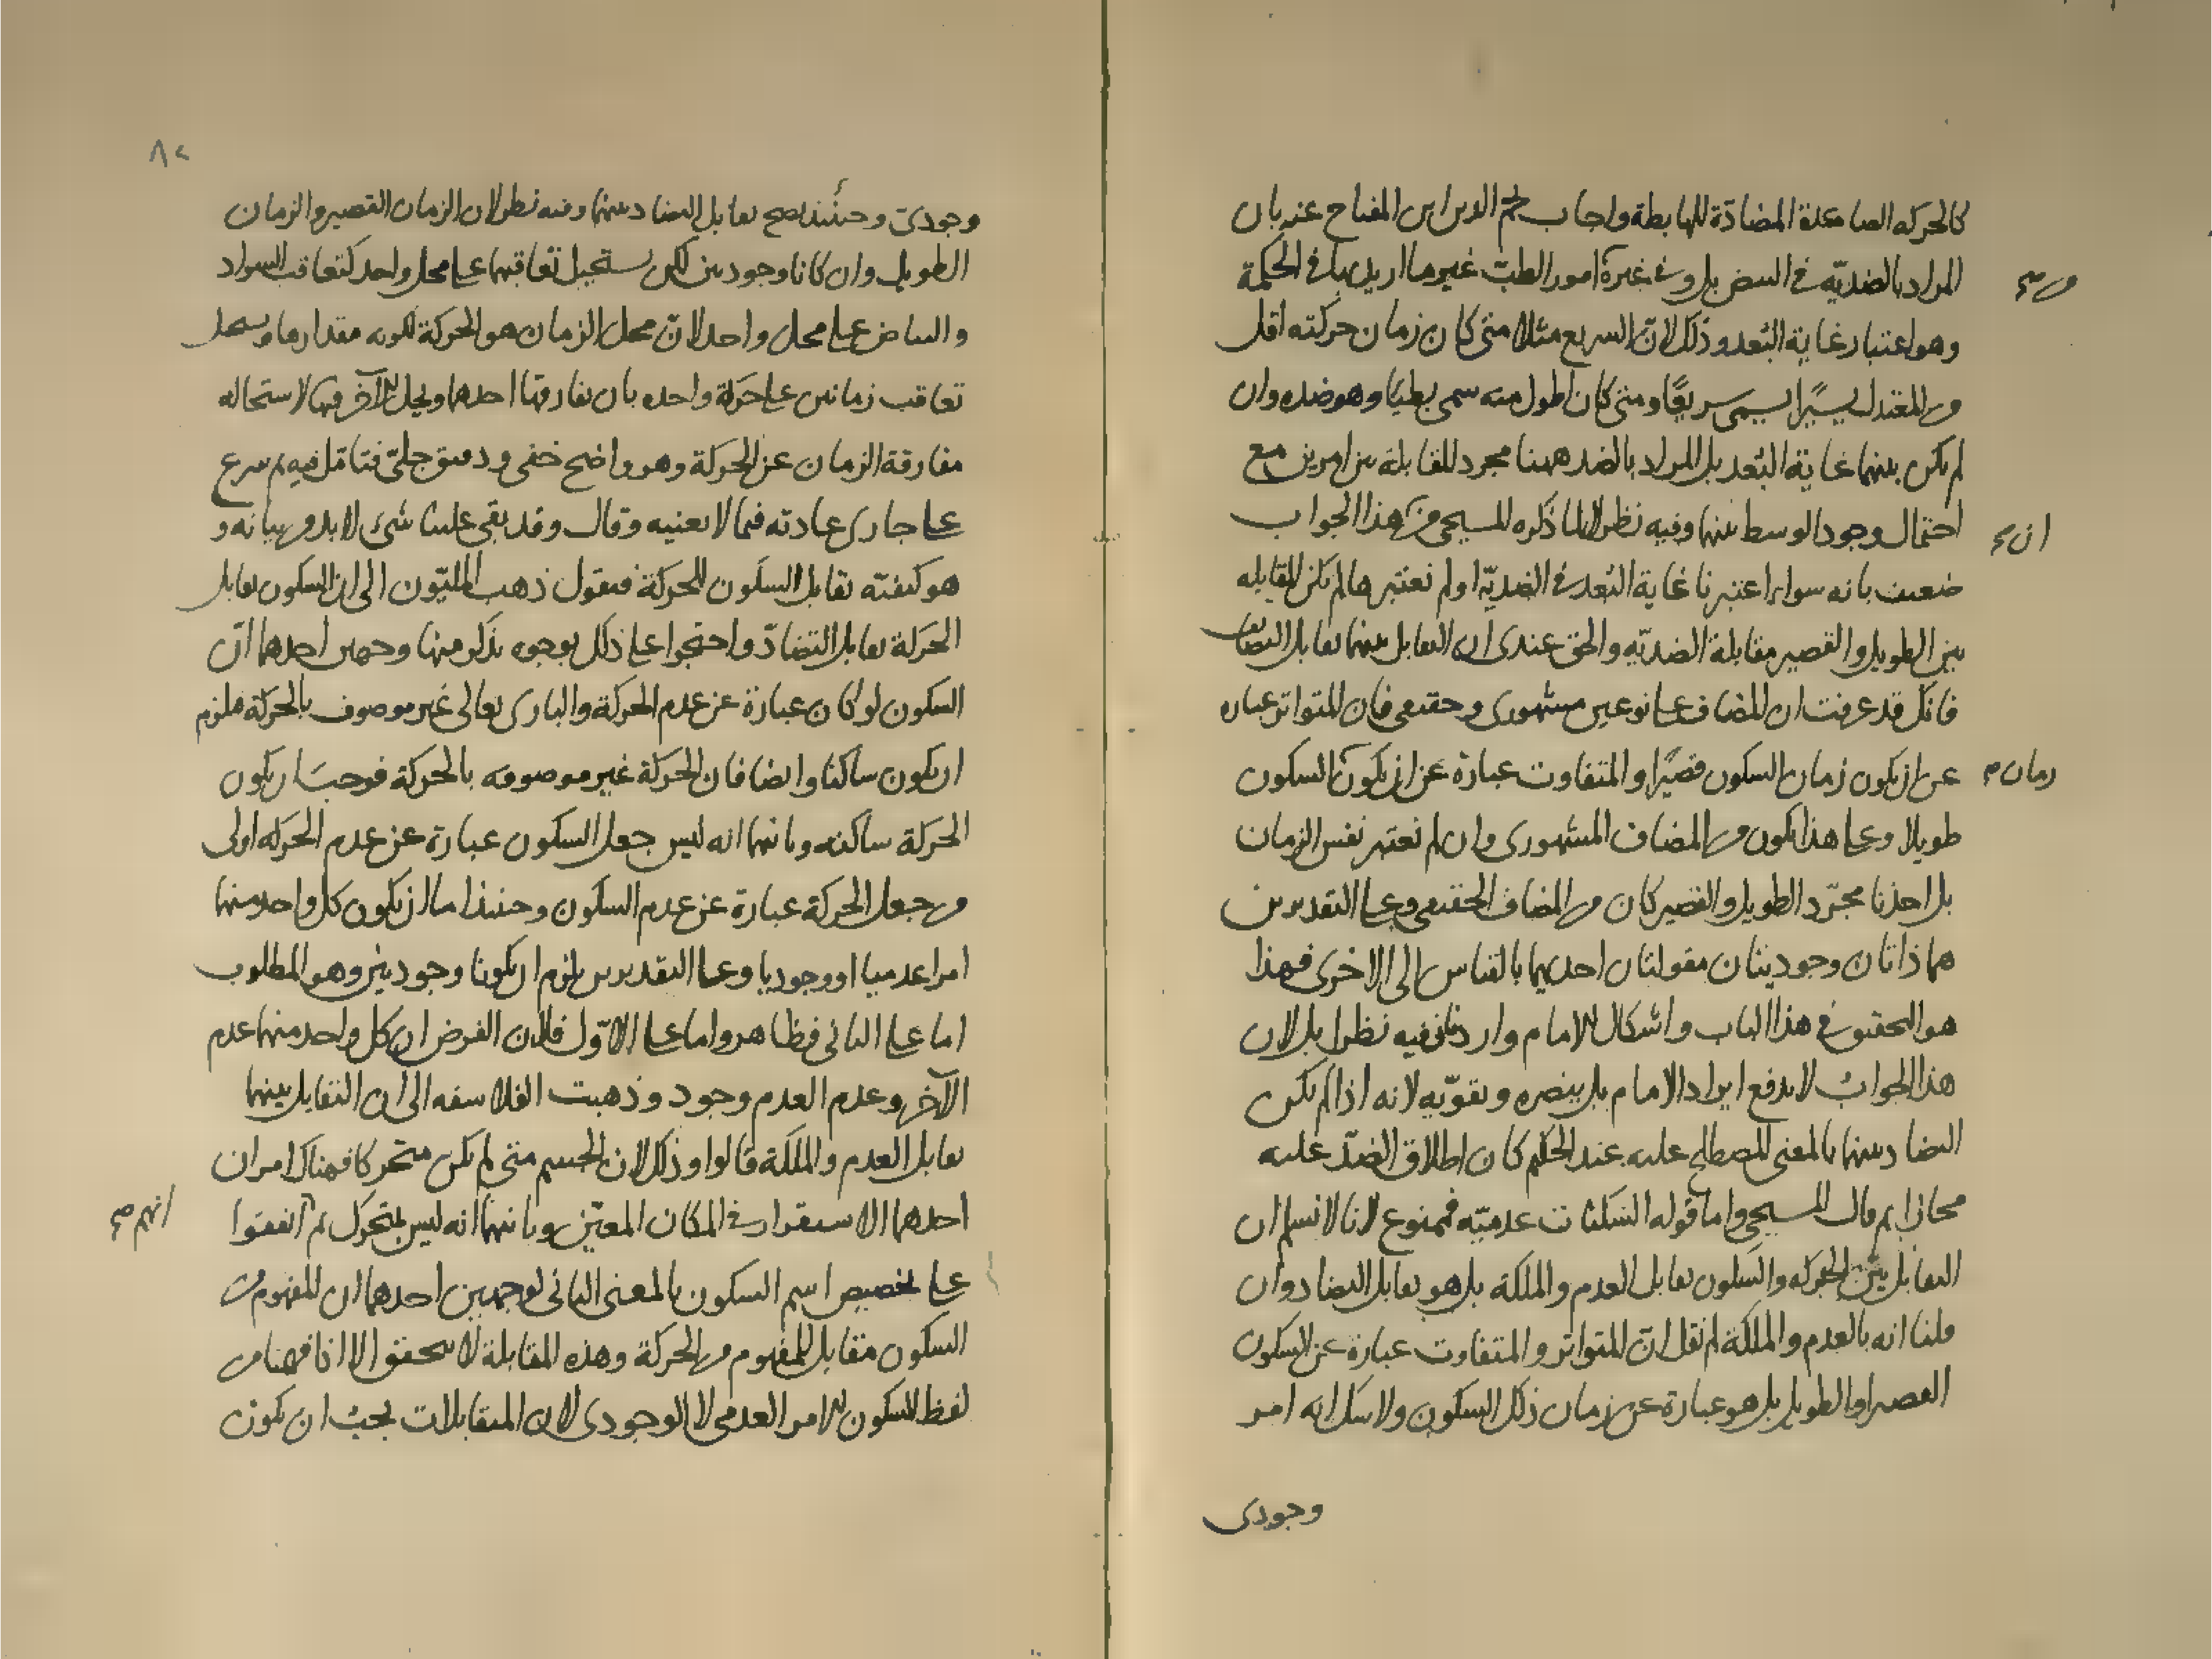 كالحركه الصاعدة المضادة للهابطة واجاب نجم الدين ابن المفتاح عنه بان
المراد بالضديّه في النبض بل وفي غيره من امور الطبّ غير ما اريد بها في الحكمة
من صح
وهو اعتبار غاية البُعد وذلك لانّ السريع مثلا متى كان زمان حركته اقل
من المعتدل يسيرًا يسمى سريعًا ومتى كان اطول منه سمى بطيئا وهو ضده وان
لم يكن بينهما غاية البُعد بل المراد بالضد ههنا مجرد المقابلة بين امرين مع
احتمال وجود الوسط بينهما وفيه نظر لما ذكره المسيحي من هذا الجواب
ان صح
ضعيف بانه سواء اعتبرنا غاية البُعد في الضديّة او لم نعتبرها لم تكن المقابله
بين الطويل والقصير مقابلة الضديّه والحق عندى ان التقابل بينهما تقابل التضايف
فانك قد عرفت ان المضاف على نوعين مشهورى وحقيقى فان المتواتر عباره
عن ان يكون زمان السكون قصيرًا والمتفاوت عبارة عن ان يكون السكون
زمان صح
طويلا وعلى هذا يكون من المضاف المشهورى وان لم نعتبر نفس الزمان
بل اخذنا مجرّد الطويل والقصير كان من المضاف الحقيقى وعلى التقديرين
هما ذاتان وجوديتان مقولتان احديهما بالقياس الى الاخرى فهذا
هو التحقيق في هذا الباب واشكال الامام وارد وفيه نظر لان
هذا الجواب لا يدفع ايراد الامام بل ينصره ويقوّيه لانه اذا لم يكن
التضاد بينهما بالمعنى المصطلح عليه عند الحكيم كان اطلاق الضدّ عليه
مجازا ثم قال المسيحى واما قوله السكنات عدميّه فممنوع لانا لا نسلم ان
التقابل بين الحركه والسكون تقابل العدم والملكة بل هو تقابل التضاد وان
قلنا انه بالعدم والملكة لم نقل انّ المتواتر والمتفاوت عبارة عن السكون
القصير او الطويل بل هو عبارة عن زمان ذلك السكون ولا شك انه امر
وجودى
٨٢
وجودىّ وحينئذ يصح تقابل التضاد بينهما وفيه نظر لان الزمان القصير والزمان
الطويل وان كانا وجوديين لكن يستحيل تعاقبهما على محل واحد كتعاقب السواد
والبياض على محل واحد لانّ محل الزمان هو الحركة لكونه مقدارها ويستحيل
تعاقب زمانين على حركة واحده بان يفارقها احدهما ويحل الآخر فيها لاستحاله
مفارقة الزمان عن الحركة وهو واضح خفى ودقيق جلىّ فتامّل فيه ثم شرع
على جارى عادته فيما لا يعنيه وقال وقد بقى علينا شىء لا بد من بيانه و
هو كيفيّه تقابل السكون للحركة فنقول ذهب المليّون الى ان السكون يقابل
الحركة تقابل التضادّ واحتجوا على ذلك بوجوه نذكر منها وجهين احدهما انّ
السكون لو كان عبارة عن عدم الحركة والبارى تعالى غير موصوف بالحركة فلزم
ان يكون ساكنا وايضا فان الحركة غير موصوفه بالحركة فوجب ان يكون
الحركة ساكنه وثانيهما انه ليس جعل السكون عبارة عن عدم الحركه اولى
من جعل الحركة عبارة عن عدم السكون وحينئذ اما ان يكون كل واحد منهما
امرا عدميا او وجوديا وعلى التقديرين يلزم ان يكونا وجوديين وهو المطلوب
اما على الثانى فظاهر واما على الاوّل فلان الفرض ان كل واحد منهما عدم
الآخر وعدم العدم وجود وذهبت الفلاسفه الى ان التقابل بينهما
تقابل العدم والملكة قالوا وذلك لان الجسم متى لم يكن متحركا فهناك امران
احدهما الاستقرار في المكان المعيّن وثانيهما انه ليس بمتحرك ثم اتفقوا
انهم صح
على تخصيص اسم السكون بالمعنى الثانى لوجهين احدهما ان المفهوم من
السكون مقابل للمفهوم من الحركة وهذه المقابلة لا تتحقق الا اذا فهمنا من
لفظ السكون الامر العدمى لا الوجودى لان المتقابلات يجب ان تكون